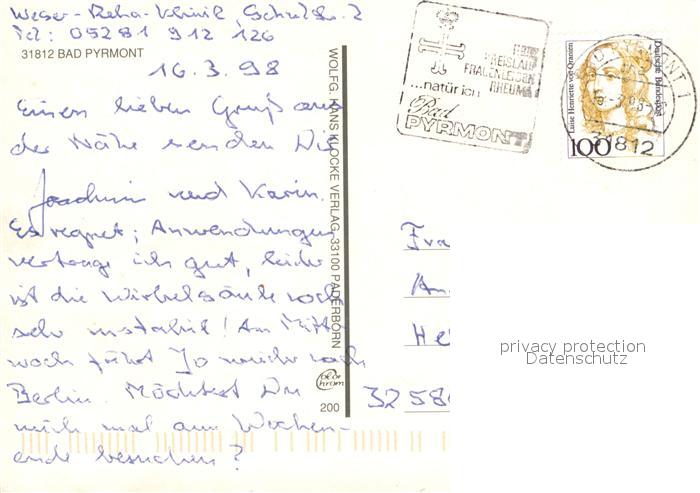 Weser-Reha-Klinik, Schulstr. 2
Tel: 05281 912 126
31812 BAD PYRMONT
16.3.98
Einen lieben Gruß aus
der Nähe senden Dir
Joachim und Karin.
Es regnet; Anwendungen
vertrage ich gut, leider
ist die Wirbelsäule noch
sehr instabil! Am Mitt-
woch fährt Jo wieder nach
Berlin. Möchtest Du
mich mal am Wochen-
ende besuchen?
WOLFG. HANS KLOCKE VERLAG, 33100 PADERBORN
200
HERZ
KREISLAUF
FRAUENLEIDEN
RHEUMA
...natürlich
Bad
PYRMONT
Luise Henriette von Oranien
Deutsche Bundespost
100
31812
Fra
An
He
3258
privacy protection
Datenschutz